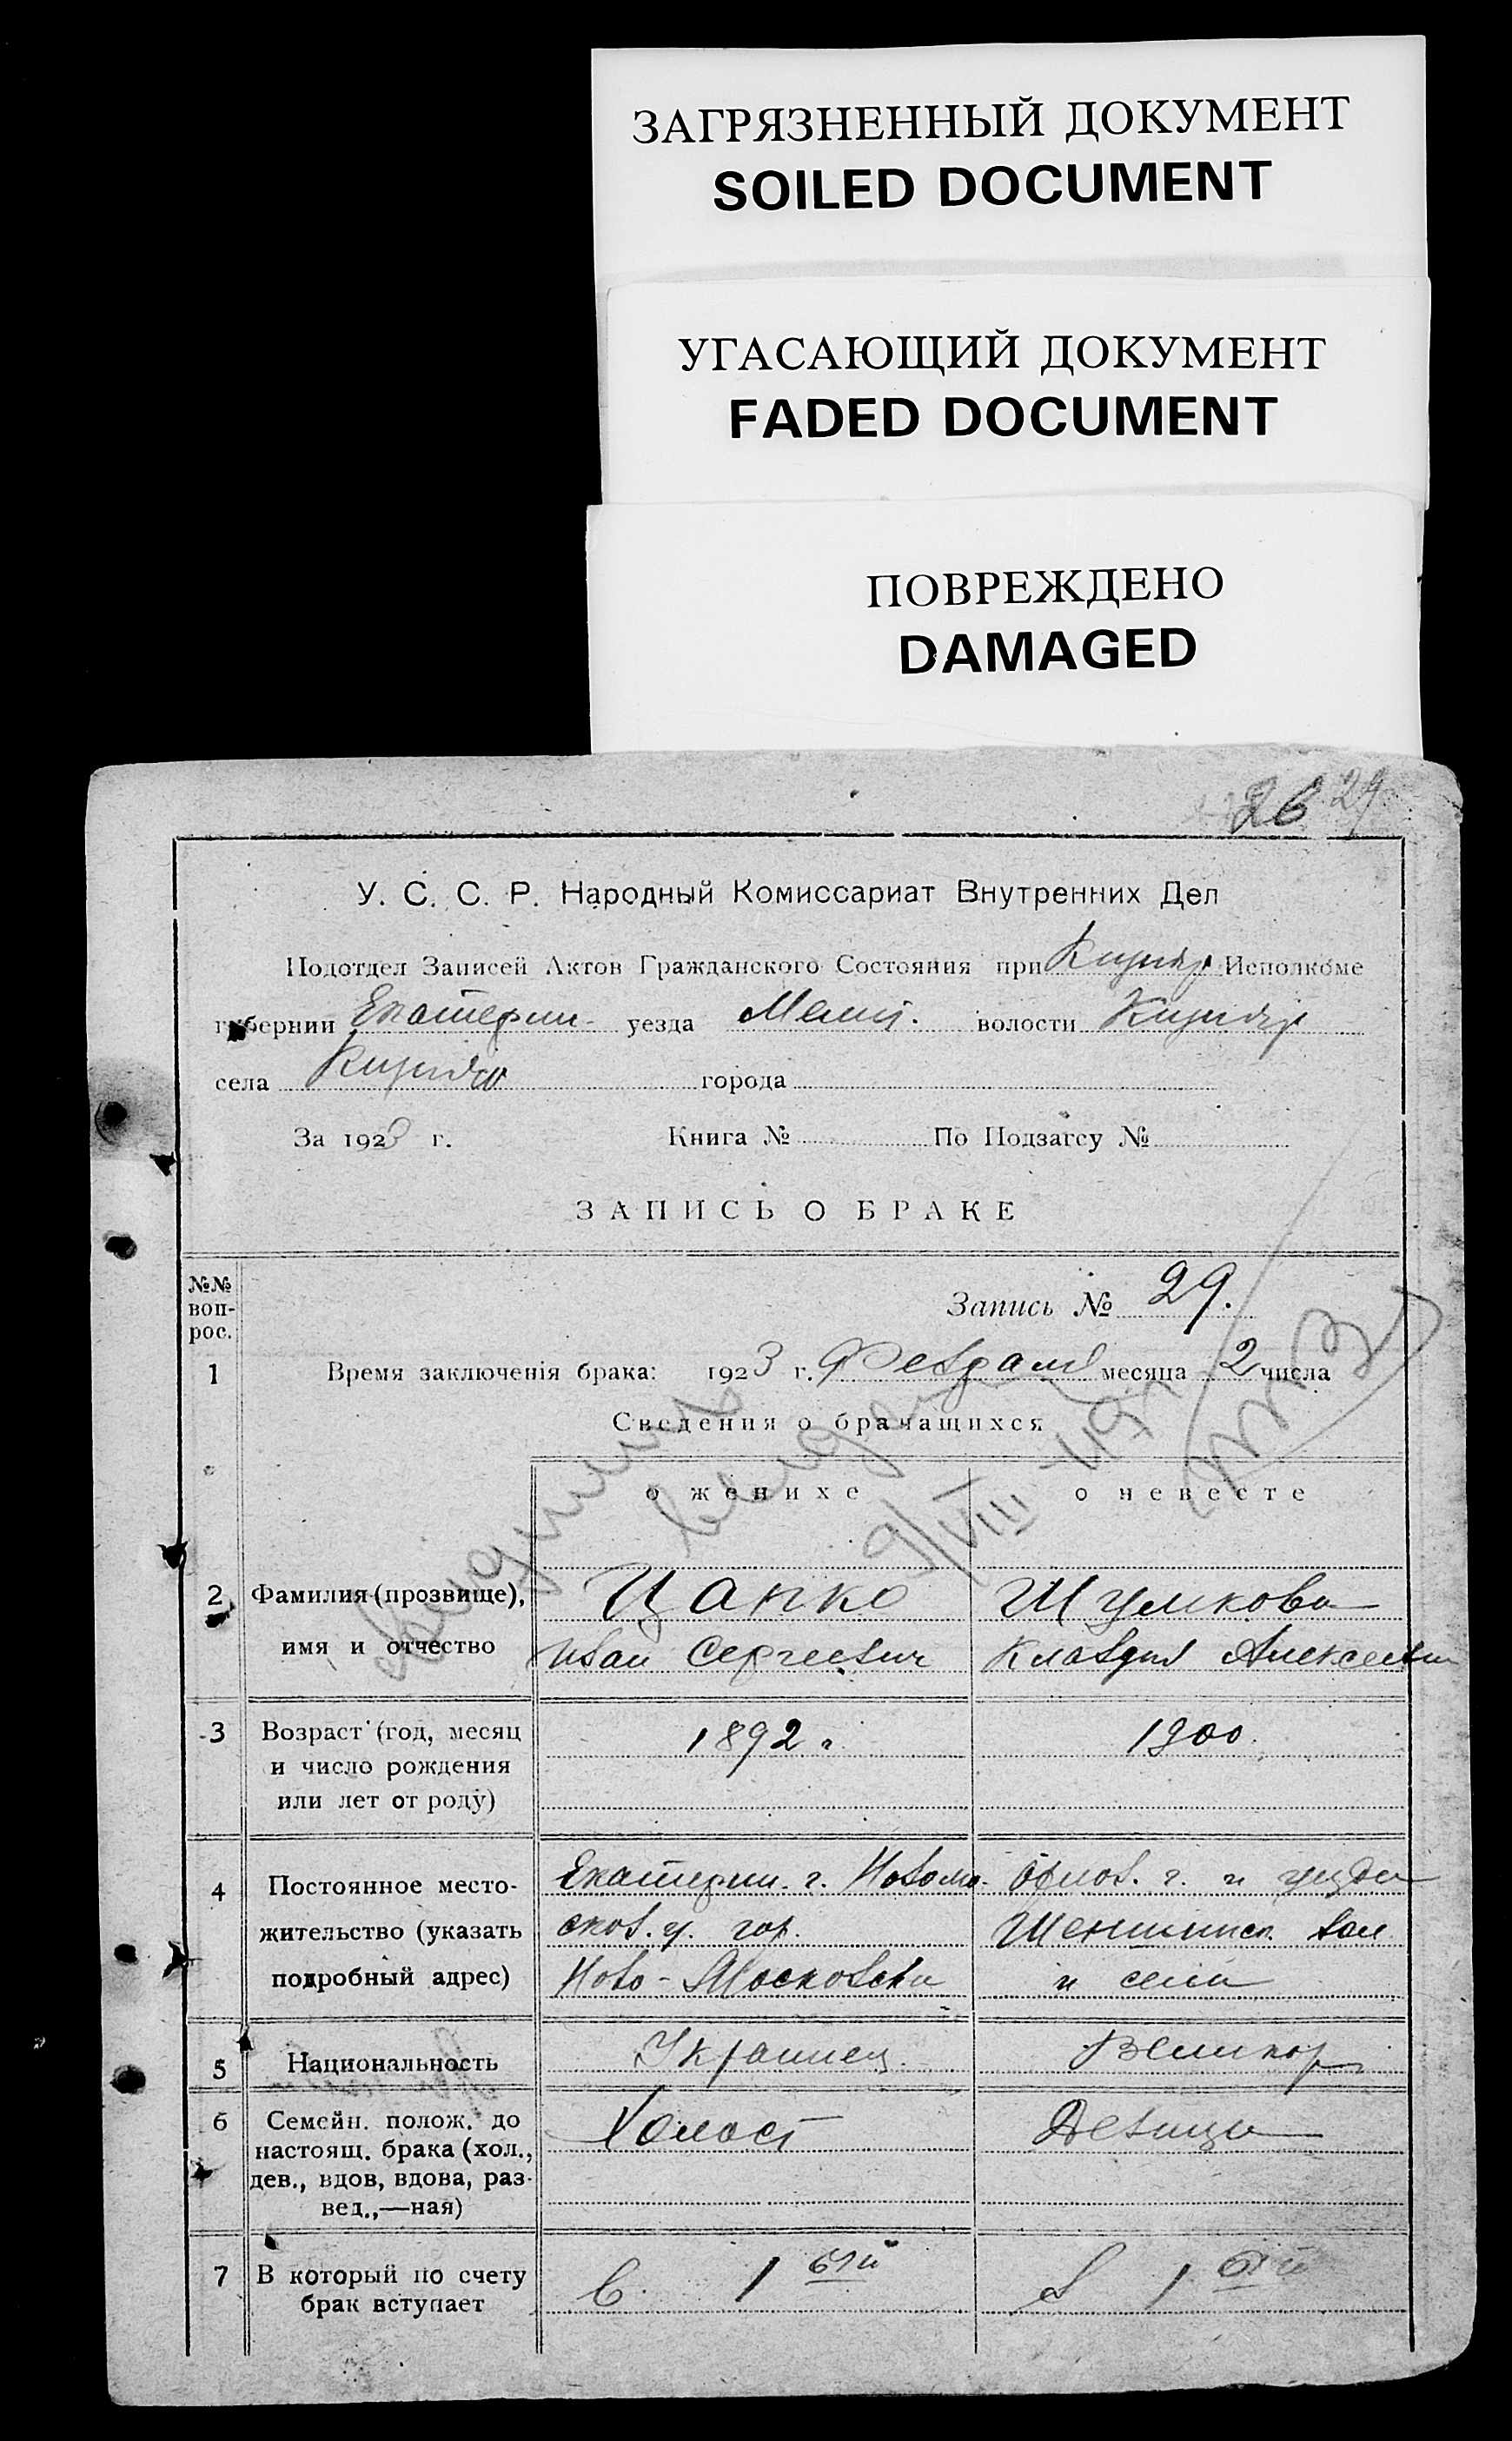 ЗАГРЯЗНЕННЫЙ ДОКУМЕНТ
SOILED DOCUMENT
УГАСАЮЩИЙ ДОКУМЕНТ
FADED DOCUMENT
ПОВРЕЖДЕНО
DAMAGED
26 29
У. С. С. Р. Народный Комиссариат Внутренних Дел
Подотдел Записей Актов Гражданского Состояния при Исполкоме
губернии Екатерин. уезда волости
села города
За 1923 г. Книга № По Подзагсу №
ЗАПИСЬ О БРАКЕ
№№ воп-рос.
Запись № 29.
1 Время заключенія брака: 1923 г. Февраля месяца 2 числа
Сведения о брачащихся
о женихе о невесте
9/VIII
2 Фамилия (прозвище), Цапко Шумкова
имя и отчество Иван Сергеевич Клавдия Алексеевн
3 Возраст (год, месяц 1892 г. 1900.
и число рождения
или лет от роду)
4 Постоянное место- Екатерин. г. Новомо- Орлов. г. и уезда
жительство (указать сков. у. гор. вол.
подробный адрес) Ново-Московска и села
5 Национальность Украинец. Великор
6 Семейн. полож. до Холост Девица
настоящ. брака (хол.,
дев., вдов, вдова, раз-
вед.,—ная)
7 В который по счету в 1ый в 1ый
брак вступает